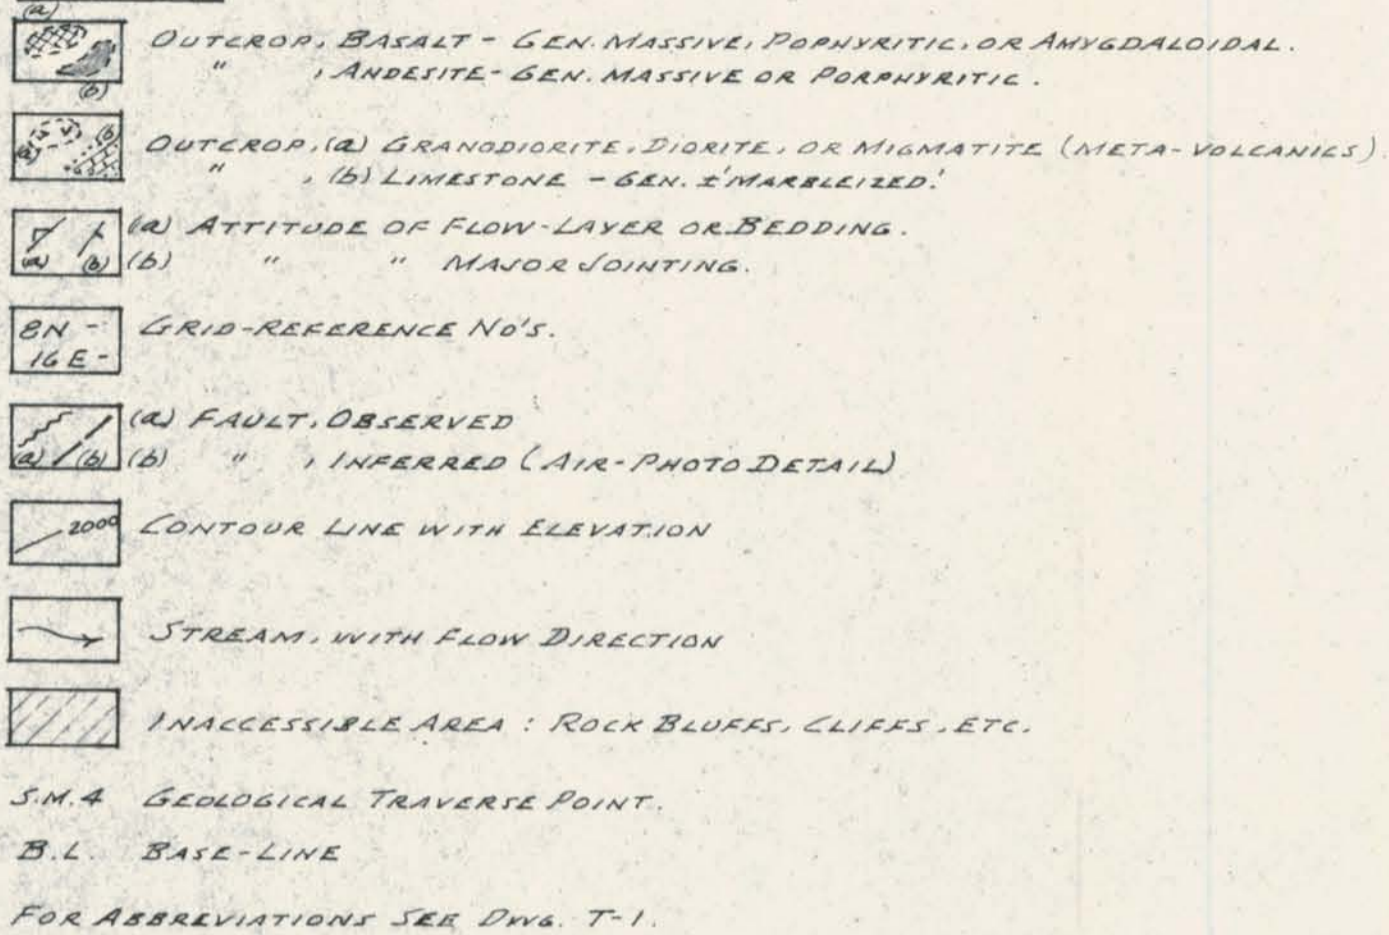 (a)
OUTCROP, BASALT - GEN. MASSIVE, POPHYRITIC, OR AMYGDALOIDAL.
" , ANDESITE - GEN. MASSIVE OR PORPHYRITIC.
(b)
OUTCROP, (a) GRANODIORITE, DIORITE, OR MIGMATITE (META-VOLCANICS)
(a) (b)
" , (b) LIMESTONE - GEN. ± 'MARBLEIZED.'
(a) ATTITUDE OF FLOW-LAYER OR BEDDING.
(a) (b) (b) " " MAJOR JOINTING.
8N - GRID-REFERENCE NO'S.
16E -
(a) FAULT, OBSERVED
(a) (b) (b) " , INFERRED (AIR-PHOTO DETAIL)
2000 CONTOUR LINE WITH ELEVATION
STREAM, WITH FLOW DIRECTION
INACCESSIBLE AREA : ROCK BLUFFS, CLIFFS, ETC.
S.M.4 GEOLOGICAL TRAVERSE POINT.
B.L. BASE-LINE
FOR ABBREVIATIONS SEE DWG. T-1.